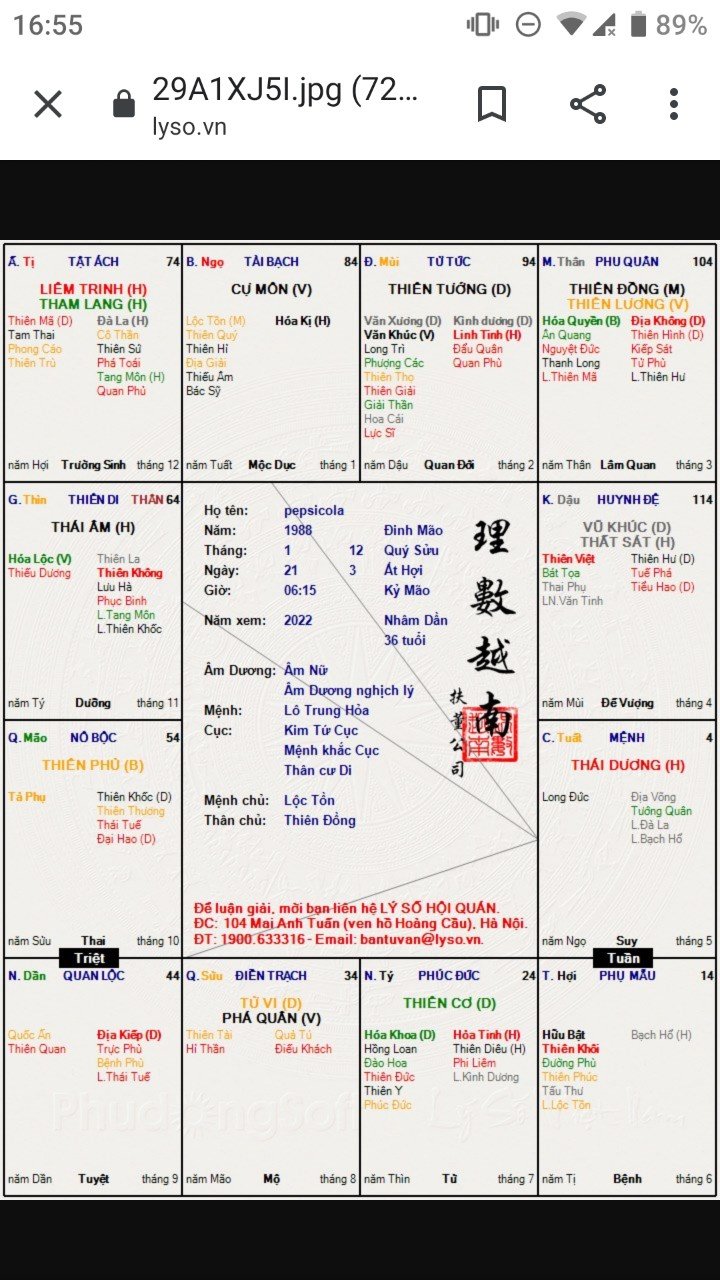 16:55
89%
29A1XJ5I.jpg (72...
lyso.vn
Ấ. Tị TẬT ÁCH 74
LIÊM TRINH (H)
THAM LANG (H)
Thiên Mã (D) Đà La (H)
Tam Thai Cô Thần
Phong Cáo Thiên Sứ
Thiên Trù Phá Toái
Tang Môn (H)
Quan Phủ
năm Hợi Trường Sinh tháng 12
B. Ngọ TÀI BẠCH 84
CỰ MÔN (V)
Lộc Tồn (M) Hóa Kị (H)
Thiên Quý
Thiên Hỉ
Địa Giải
Thiếu Âm
Bác Sỹ
năm Tuất Mộc Dục tháng 1
Đ. Mùi TỬ TỨC 94
THIÊN TƯỚNG (D)
Văn Xương (D) Kình dương (D)
Văn Khúc (V) Linh Tinh (H)
Long Trì Đẩu Quân
Phượng Các Quan Phù
Thiên Thọ
Thiên Giải
Giải Thần
Hoa Cái
Lực Sĩ
năm Dậu Quan Đới tháng 2
M. Thân PHU QUÂN 104
THIÊN ĐỒNG (M)
THIÊN LƯƠNG (V)
Hóa Quyền (B) Địa Không (D)
Ân Quang Thiên Hình (D)
Nguyệt Đức Kiếp Sát
Thanh Long Tử Phù
L.Thiên Mã L.Thiên Hư
năm Thân Lâm Quan tháng 3
G. Thìn THIÊN DI THÂN 64
THÁI ÂM (H)
Hóa Lộc (V) Thiên La
Thiếu Dương Thiên Không
Lưu Hà
Phục Binh
L.Tang Môn
L.Thiên Khốc
năm Tý Dưỡng tháng 11
Họ tên: pepsicola
Năm: 1988 Đinh Mão
Tháng: 1 12 Quý Sửu
Ngày: 21 3 Ất Hợi
Giờ: 06:15 Kỷ Mão
Năm xem: 2022 Nhâm Dần
36 tuổi
Âm Dương: Âm Nữ
Âm Dương nghịch lý
Mệnh: Lô Trung Hỏa
Cục: Kim Tứ Cục
Mệnh khắc Cục
Thân cư Di
Mệnh chủ: Lộc Tồn
Thân chủ: Thiên Đồng
理數越南
扶董公司
Để luận giải, mời bạn liên hệ LÝ SỐ HỘI QUÁN.
ĐC: 104 Mai Anh Tuấn (ven hồ Hoàng Cầu), Hà Nội.
ĐT: 1900.633316 - Email: bantuvan@lyso.vn.
K. Dậu HUYNH ĐỆ 114
VŨ KHÚC (D)
THẤT SÁT (H)
Thiên Việt Thiên Hư (D)
Bát Tọa Tuế Phá
Thai Phụ Tiểu Hao (D)
LN.Văn Tinh
năm Mùi Đế Vượng tháng 4
Q. Mão NÔ BỘC 54
THIÊN PHỦ (B)
Tả Phụ Thiên Khốc (D)
Thiên Thương
Thái Tuế
Đại Hao (D)
năm Sửu Thai tháng 10
C. Tuất MỆNH 4
THÁI DƯƠNG (H)
Long Đức Địa Võng
Tướng Quân
L.Đà La
L.Bạch Hổ
năm Ngọ Suy tháng 5
Triệt
Tuần
N. Dần QUAN LỘC 44
Quốc Ấn Địa Kiếp (D)
Thiên Quan Trực Phù
Bệnh Phù
L.Thái Tuế
năm Dần Tuyệt tháng 9
Q. Sửu ĐIỀN TRẠCH 34
TỬ VI (D)
PHÁ QUÂN (V)
Thiên Tài Quả Tú
Hỉ Thần Điếu Khách
năm Mão Mộ tháng 8
N. Tý PHÚC ĐỨC 24
THIÊN CƠ (D)
Hóa Khoa (D) Hỏa Tinh (H)
Hồng Loan Thiên Diêu (H)
Đào Hoa Phi Liêm
Thiên Đức L.Kình Dương
Thiên Y
Phúc Đức
năm Thìn Tử tháng 7
T. Hợi PHỤ MẪU 14
Hữu Bật Bạch Hổ (H)
Thiên Khôi
Đường Phù
Thiên Phúc
Tấu Thư
L.Lộc Tồn
năm Tị Bệnh tháng 6